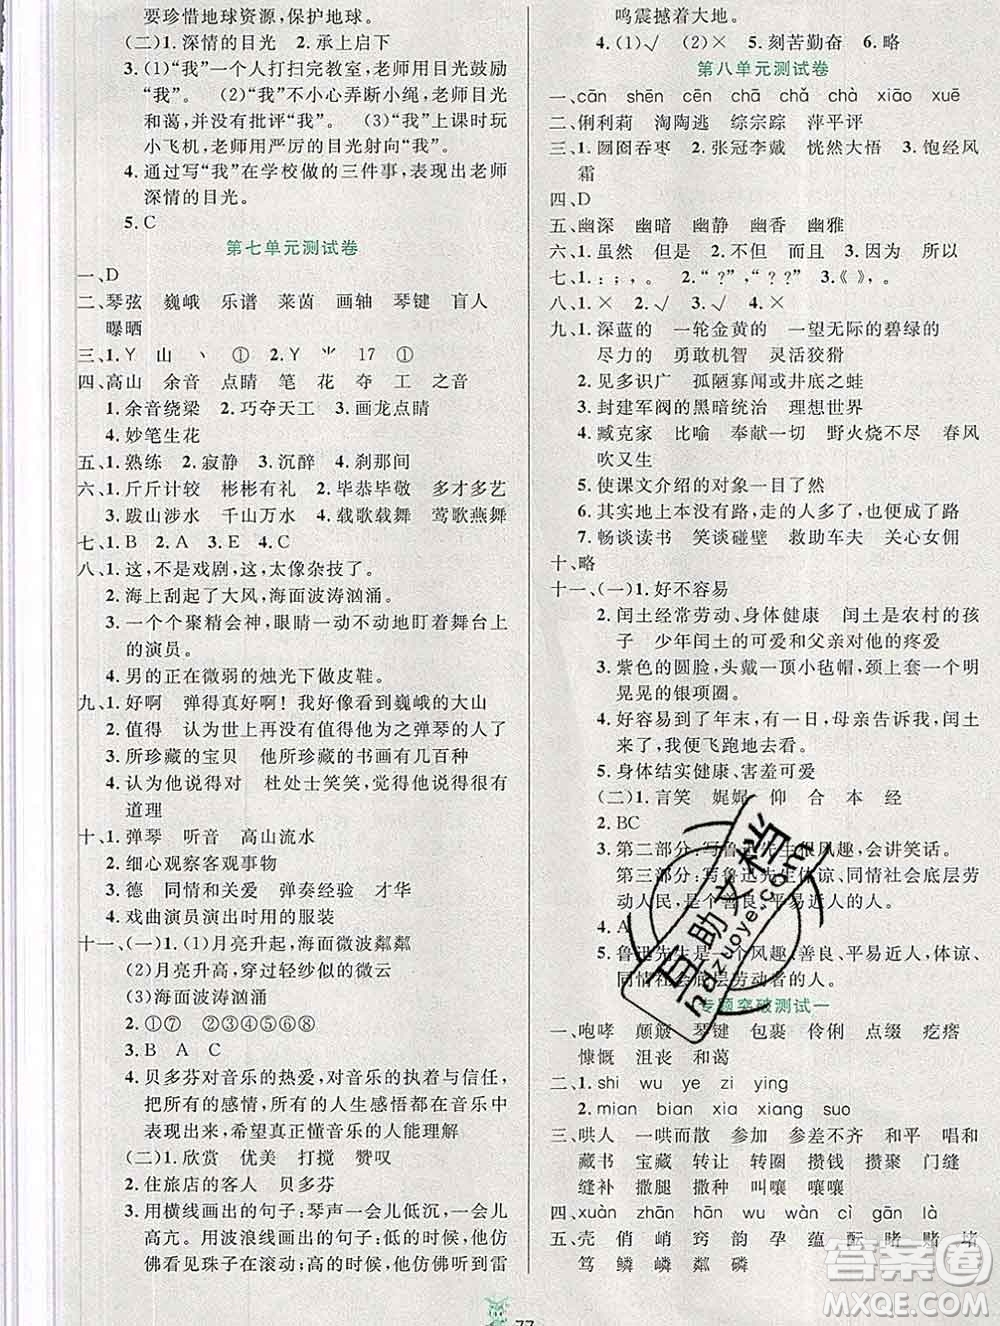 要珍惜地球资源,保护地球。
(二)1. 深情的目光　2. 承上启下
3. (1)“我”一个人打扫完教室,老师用目光鼓励
“我”。　(2)“我”不小心弄断小绳,老师目光
和蔼,并没有批评“我”。　(3)“我”上课时玩
小飞机,老师用严厉的目光射向“我”。
4. 通过写“我”在学校做的三件事,表现出老师
深情的目光。
5. C
第七单元测试卷
一、D
二、琴弦　巍峨　乐谱　莱茵　画轴　琴键　盲人
曝晒
三、1. Y　山　丶　①　2. Y　⺌　17　①
四、高山　余音　点睛　笔　花　夺　工　之音
1. 余音绕梁　2. 巧夺天工　3. 画龙点睛
4. 妙笔生花
五、1. 熟练　2. 寂静　3. 沉醉　4. 刹那间
六、1. 斤斤计较　彬彬有礼　2. 毕恭毕敬　多才多艺
3. 跋山涉水　千山万水　4. 载歌载舞　莺歌燕舞
七、1. B　2. A　3. E　4. C
八、1. 这,不是戏剧,这,太像杂技了。
2. 海上刮起了大风,海面波涛汹涌。
3. 一个个聚精会神,眼睛一动不动地盯着舞台上
的演员。
4. 男的正在微弱的烛光下做皮鞋。
九、1. 好啊　弹得真好啊!我好像看到巍峨的大山
2. 值得　认为世上再没有值得他为之弹琴的人了
3. 所珍藏的宝贝　他所珍藏的书画有几百种
4. 认为他说得对　杜处士笑笑,觉得他说得很有
道理
十、1. 弹琴　听音　高山流水
2. 细心观察客观事物
3. 德　同情和关爱　弹奏经验　才华
4. 戏曲演员演出时用的服装
十一、(一)1. (1)月亮升起,海面微波粼粼
(2)月亮升高,穿过轻纱似的微云
(3)海面波涛汹涌
2. ①⑦　②③④⑤⑥⑧
3. B　A　C
4. 贝多芬对音乐的热爱,对音乐的执着与信任,
把所有的感情,所有的人生感悟都在音乐中
弹出来。希望真正懂音乐的人能理解
(二)1. 欣赏　优美　打搅　赞叹
2. 住旅店的客人　贝多芬
3. 用横线画出的句子:琴声一会儿低沉,一会儿
高亢。用波浪线画出的句子:低的,他仿
佛看见珠子在滚动;高的,他仿佛听到雷
鸣震撼着大地。
4. (1)√　(2)×　5. 刻苦勤奋　6. 略
第八单元测试卷
一、cān　shēn　cēn　chā　chǎ　chà　xiāo　xuē
二、俐利莉　淘陶逃　综宗踪　萍平评
三、1. 囫囵吞枣　2. 张冠李戴　恍然大悟　3. 饱经风
霜
四、D
五、幽深　幽暗　幽静　幽香　幽雅
六、1. 虽然　但是　2. 不但　而且　3. 因为　所以
七、1. : ; , 。　2. “?”,“??”　3.《》,
八、1. ×　2. √　3. √　4. ×
九、1. 深蓝的　一轮金黄的　一望无际的碧绿的
尽力的　勇敢机智　灵活狡猾
2. 见多识广　孤陋寡闻或井底之蛙
3. 封建军阀的黑暗统治　理想世界
4. 臧克家　比喻　奉献一切　野火烧不尽　春风
吹又生
5. 使课文介绍的对象一目了然
6. 其实地上本没有路,走的人多了,也便成了路
7. 畅谈读书　笑谈碰壁　救助车夫　关心女佣
十、略
十一、(一)1. 好不容易
2. 闰土经常劳动、身体健康　闰土是农村的孩
子　少年闰土的可爱和父亲对他的疼爱
3. 紫色的圆脸,头戴一顶小毡帽,颈上套一个明
晃晃的银项圈。
4. 好容易到了年末,有一日,母亲告诉我,闰土
来了,我便飞跑地去看。
5. 身体结实健康、害羞可爱
(二)1. 言笑　娓娓　仰　合　本　经
2. BC
3. 第二部分:写鲁迅先生很风趣,会讲笑话。
第三部分:写鲁迅先生体谅、同情社会底层劳
动人民,是个善良、平易近人的人。
4. A
5. 鲁迅先生是一个风趣、善良、平易近人、体谅、
同情社会底层劳动者的人。
专题突破测试一
一、咆哮　颠簸　琴键　包裹　伶俐　点缀　疙瘩
慷慨　沮丧　和蔼
二、1. shi　wu　ye　zi　ying
2. mian　bian　xia　xiang　suo
三、哄人　一哄而散　参加　参差不齐　和平　唱和
藏书　宝藏　转让　转圈　攒钱　攒聚　门缝
缝补　撒腿　撒种　叫嚷　嚷嚷
四、xuàn　zhān　hān　wu　wàn　cì　gān　là
五、壳　俏　峭　窍　韵　孕　蕴　酝　睹　赌　堵
笃　鳞　嶙　粼　磷
77
互助文档
hdzuoye.com
答案圈
MXQE.COM